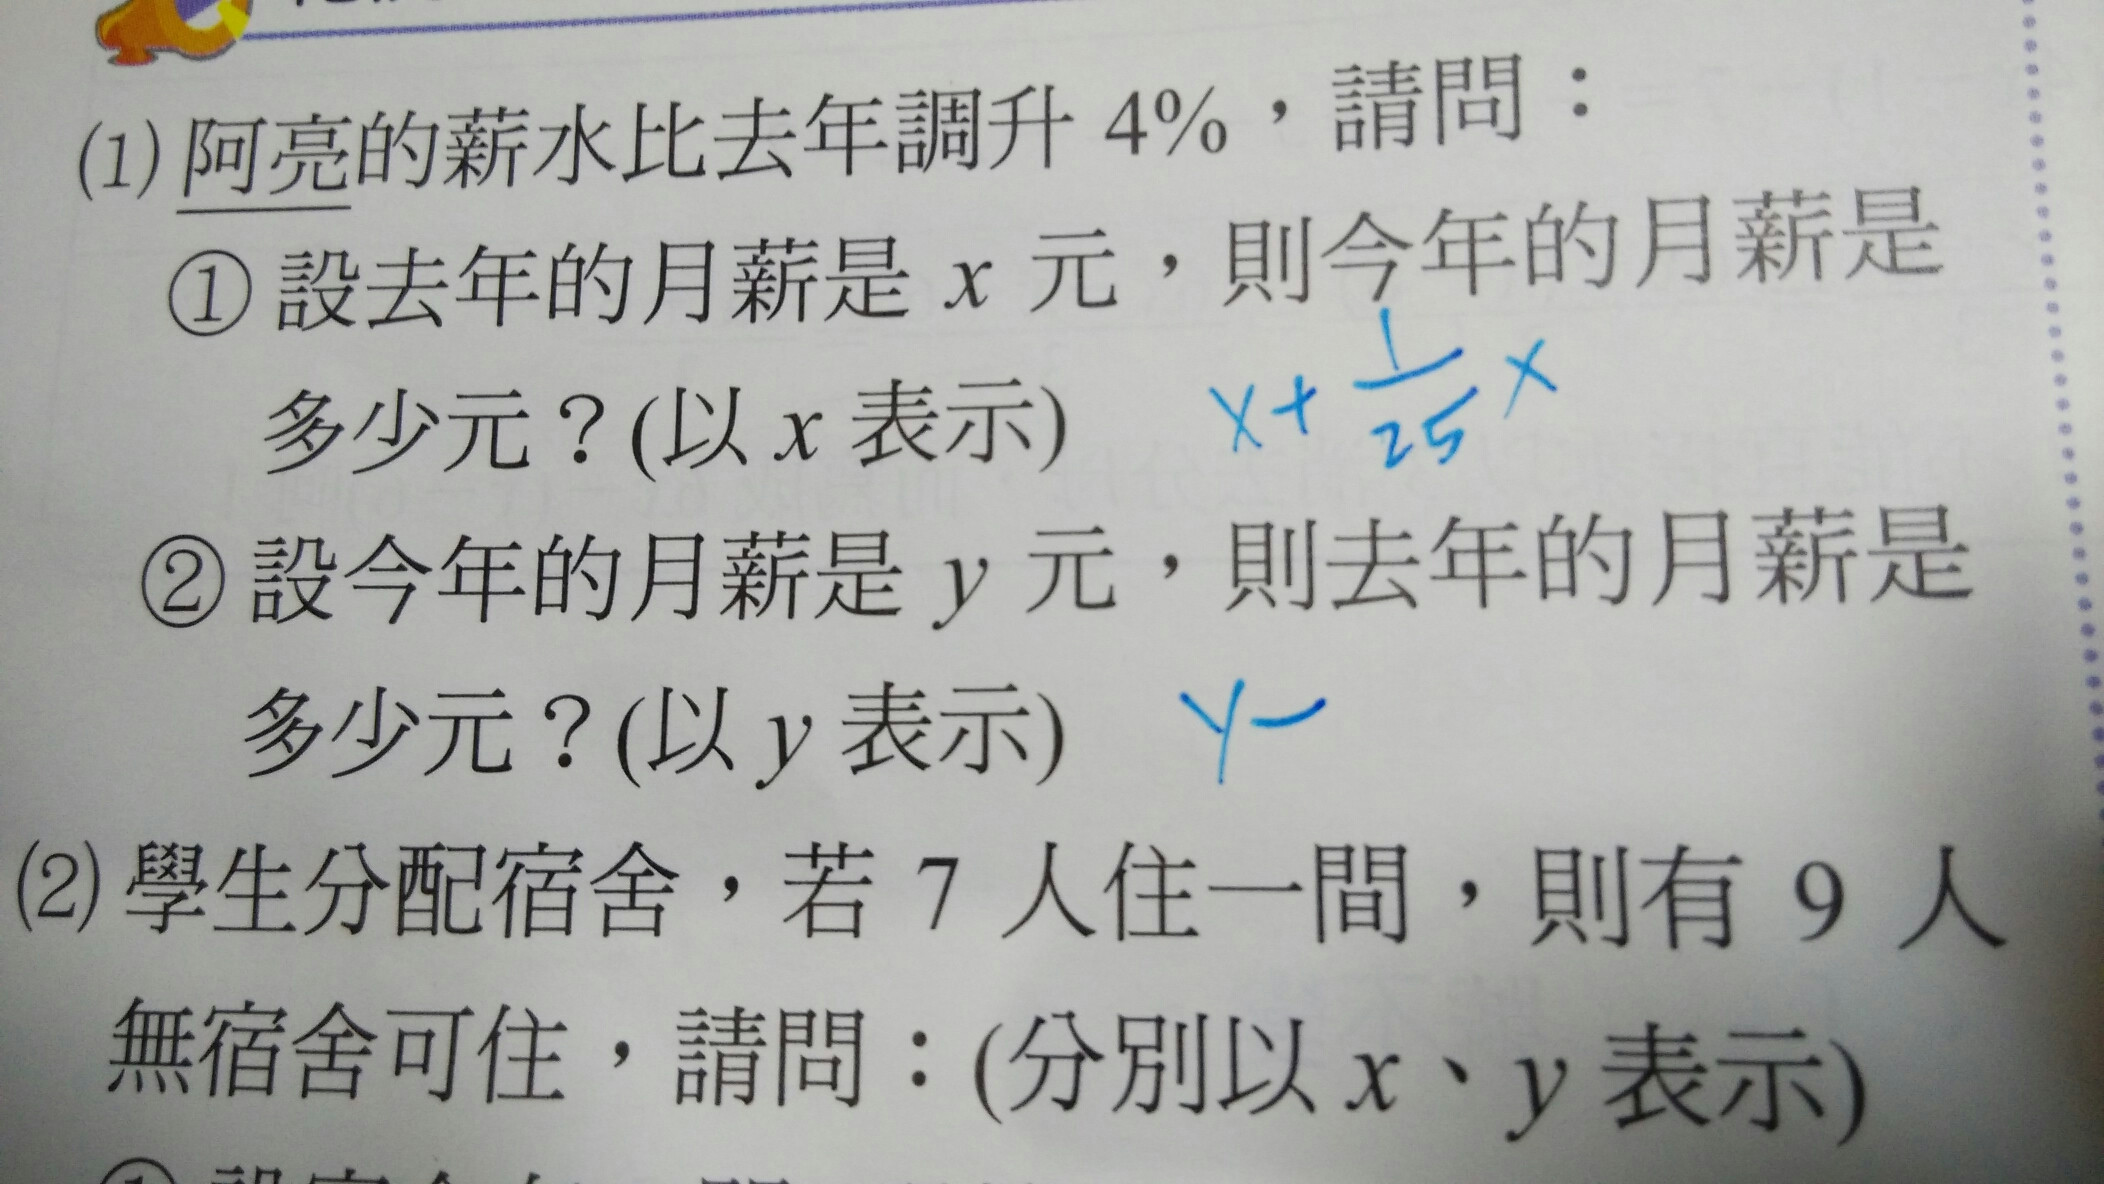 (1) 阿亮的薪水比去年調升 4%，請問：
① 設去年的月薪是 x 元，則今年的月薪是
多少元？(以 x 表示) x+1/25x
② 設今年的月薪是 y 元，則去年的月薪是
多少元？(以 y 表示) y-
(2) 學生分配宿舍，若 7 人住一間，則有 9 人
無宿舍可住，請問：(分別以 x、y 表示)